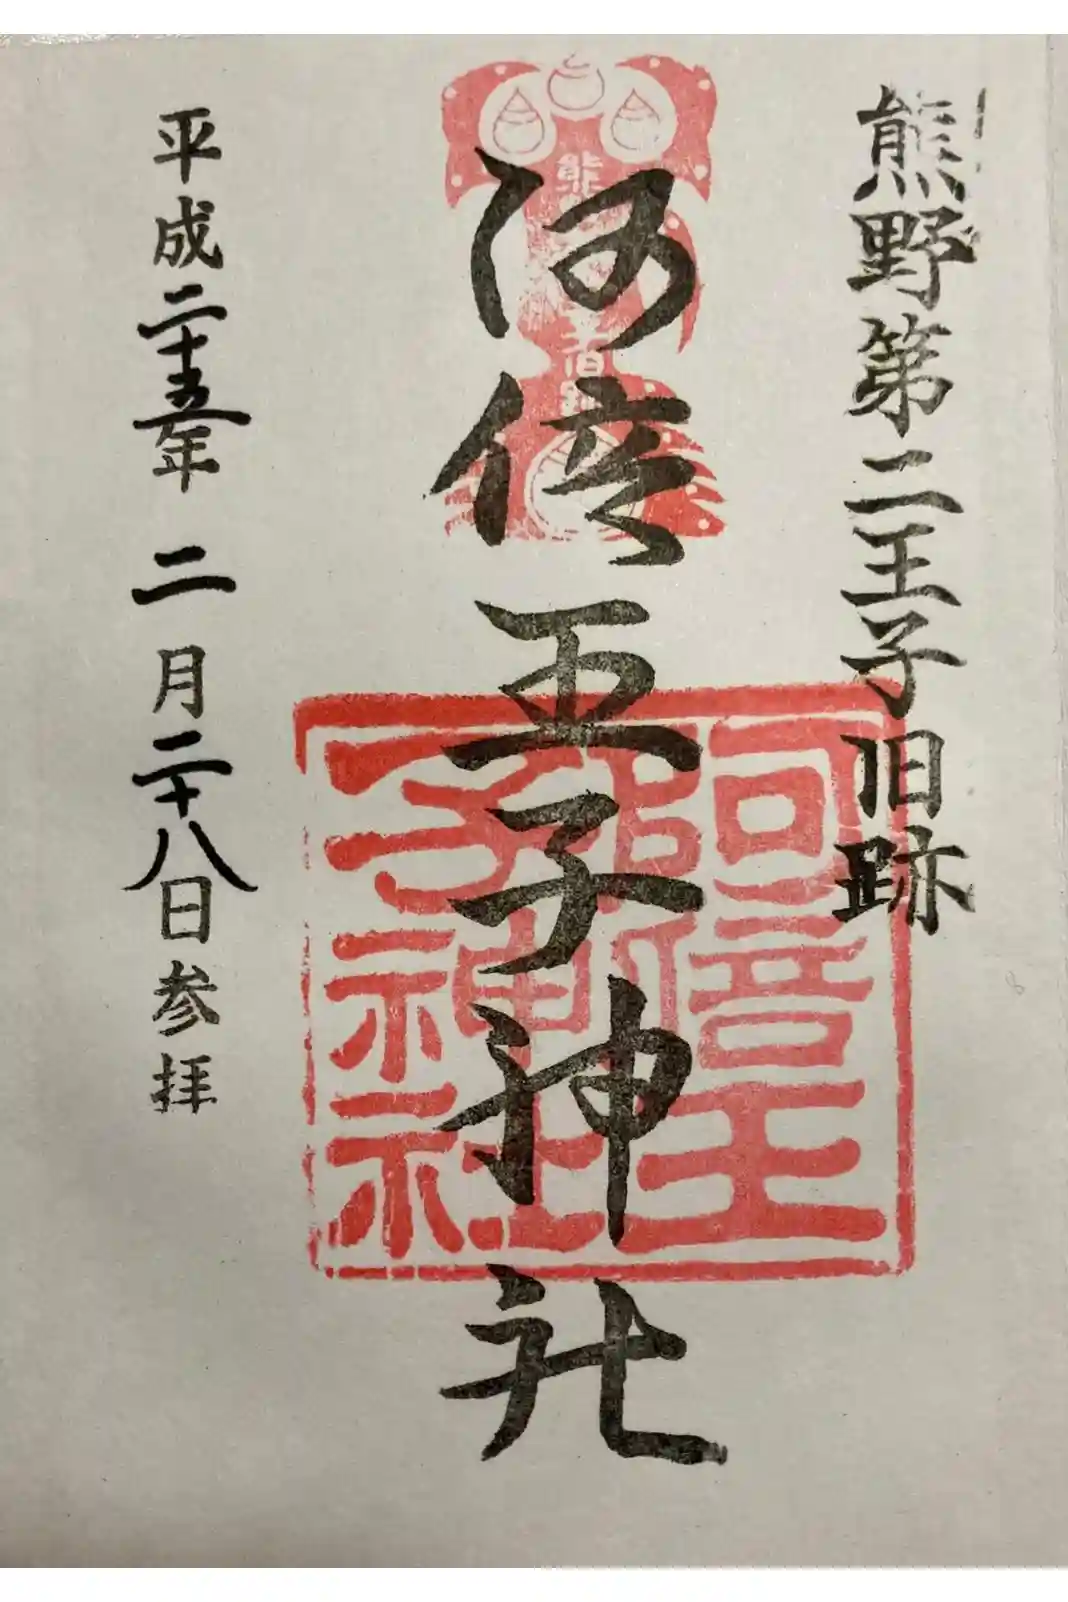 熊野第二王子旧跡
阿倍王子神社
阿倍王
子神社
平成二十五年 二月二十八日参拝